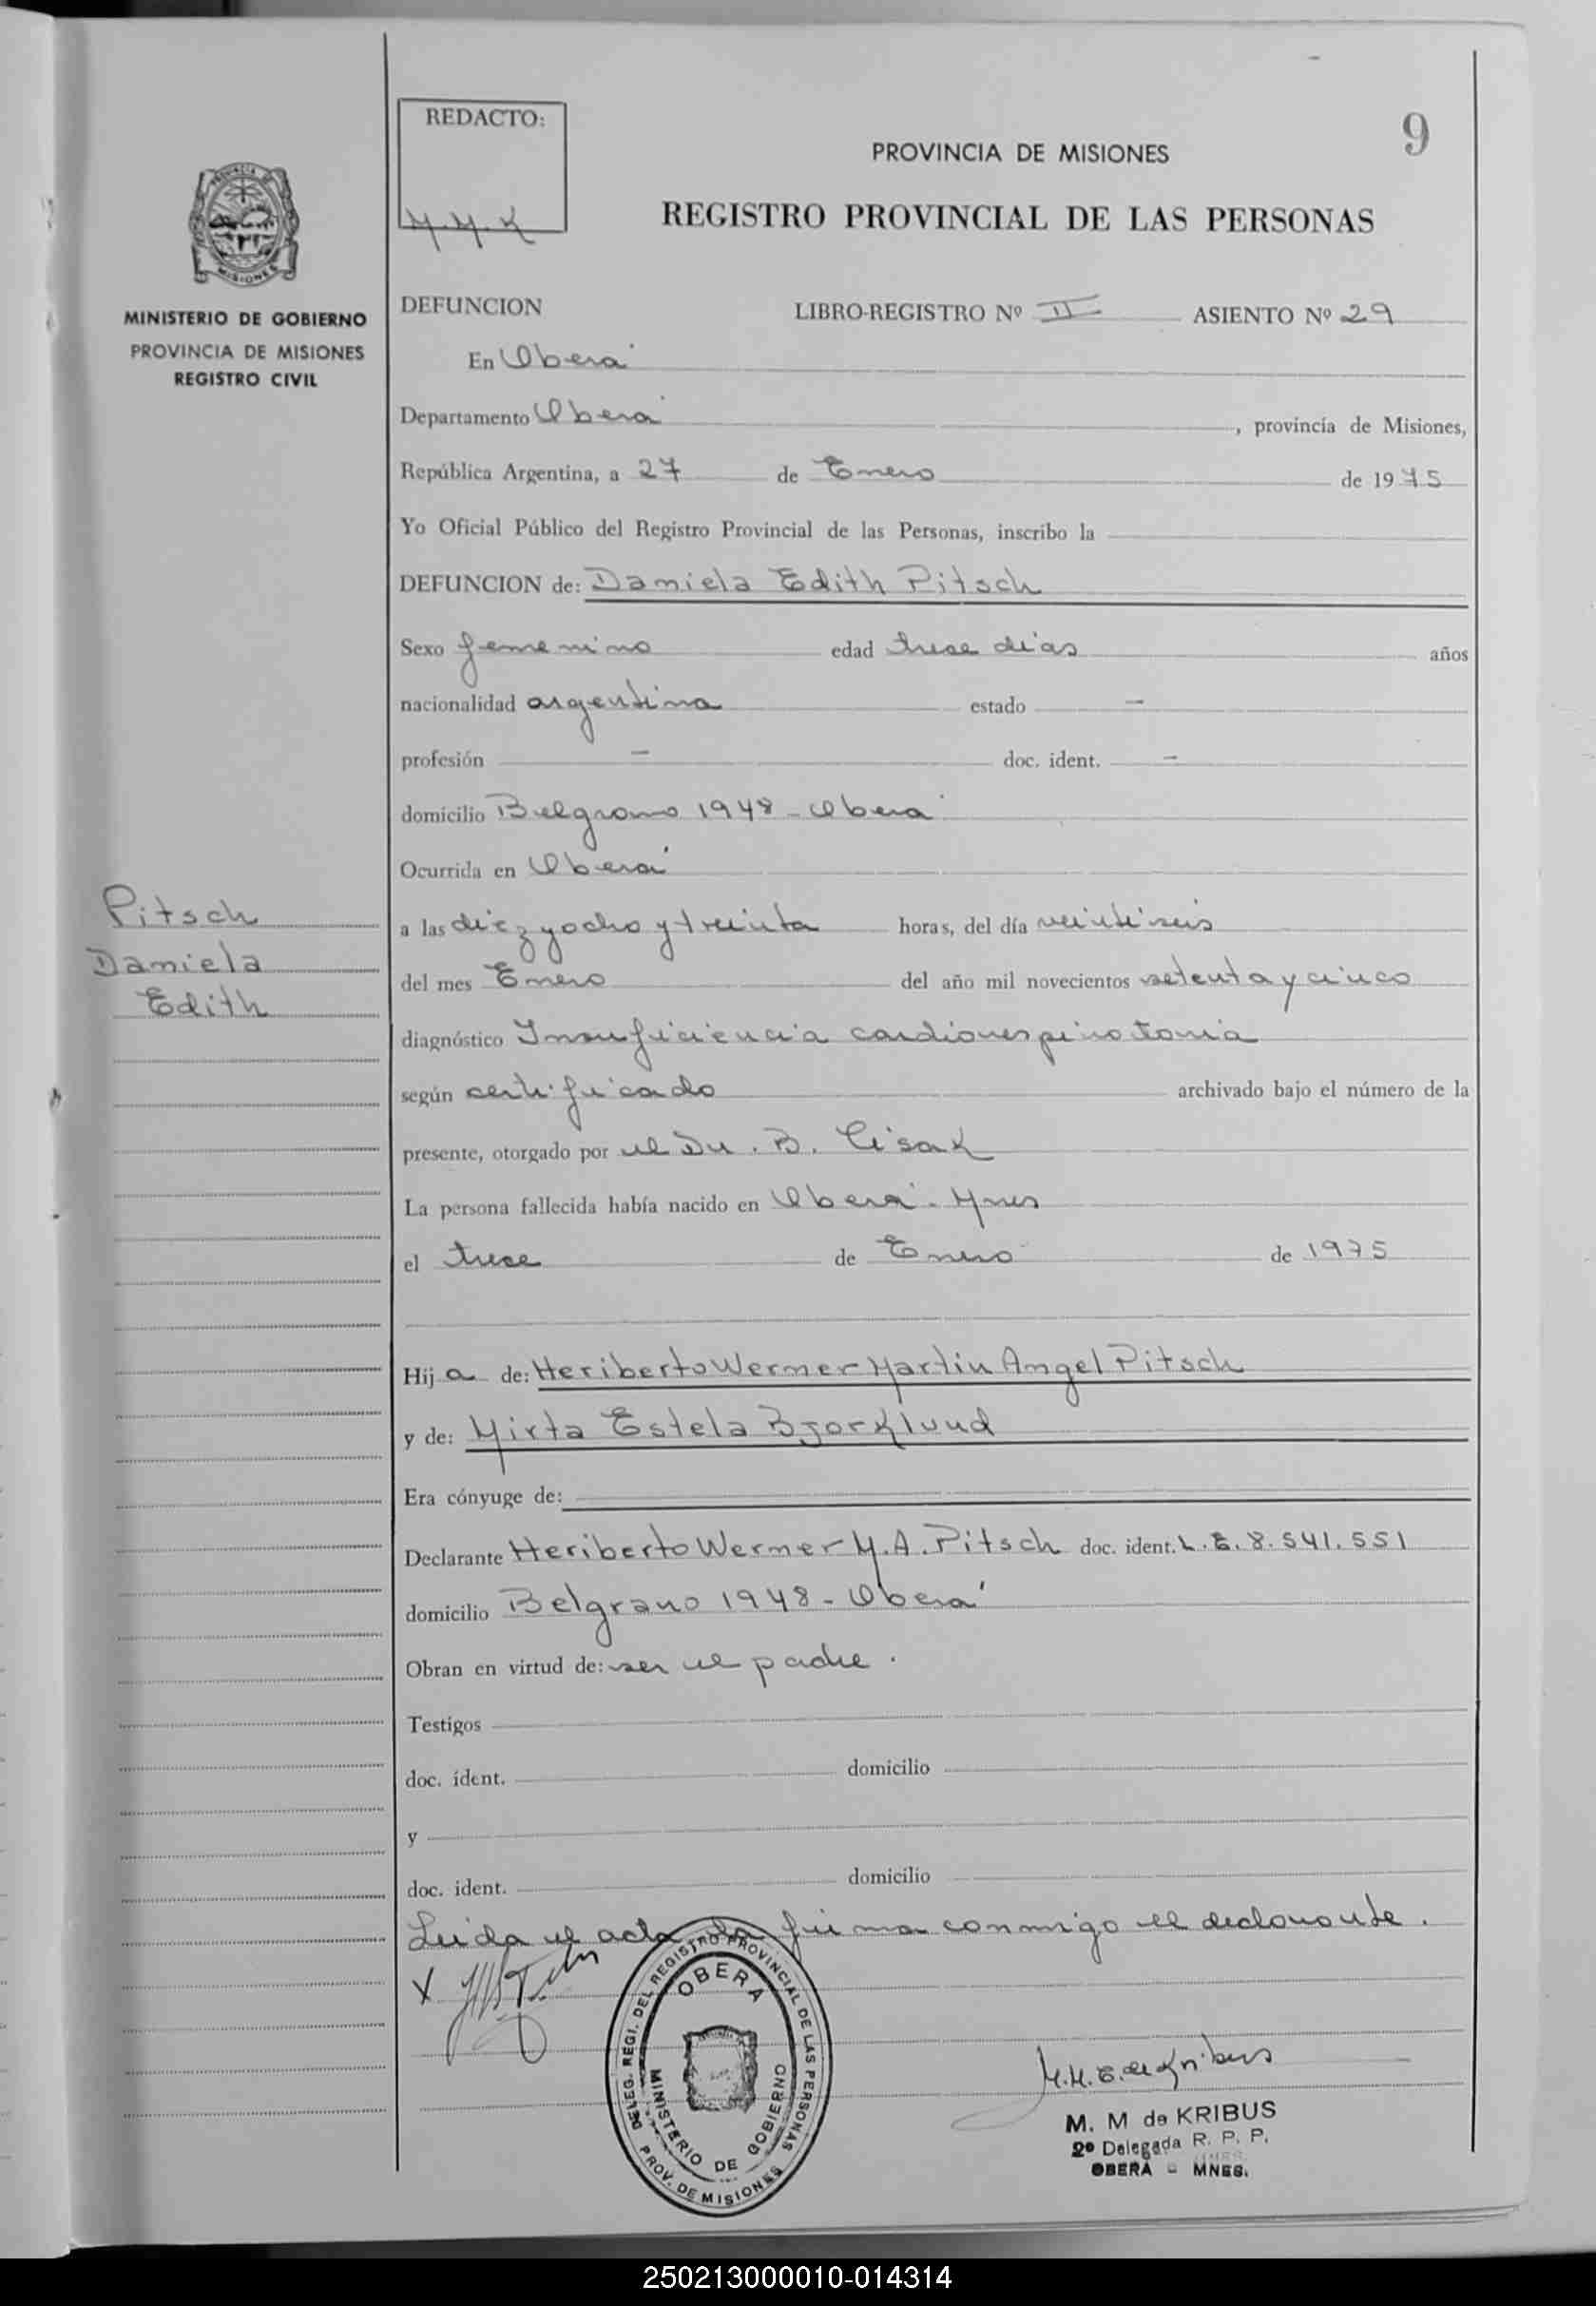 REDACTO:
M.M.K
9
PROVINCIA DE MISIONES
REGISTRO PROVINCIAL DE LAS PERSONAS
PROVINCIA DE
MISIONES
MINISTERIO DE GOBIERNO
PROVINCIA DE MISIONES
REGISTRO CIVIL
DEFUNCION LIBRO-REGISTRO Nº II ASIENTO Nº 29
En Oberá
Departamento Oberá, provincia de Misiones,
República Argentina, a 27 de Enero de 1975
Yo Oficial Público del Registro Provincial de las Personas, inscribo la
DEFUNCION de: Daniela Edith Pitsch
Sexo femenino edad trece días años
nacionalidad argentina estado —
profesión — doc. ident. —
domicilio Belgrano 1948 - Oberá
Ocurrida en Oberá
Pitsch
Daniela
Edith
a las diez y ocho y treinta horas, del día veintiseis
del mes Enero del año mil novecientos setenta y cinco
diagnóstico Insuficiencia cardiorespirotoria
según certificado archivado bajo el número de la
presente, otorgado por el Dr. B. Cisak
La persona fallecida había nacido en Oberá - Mnes
el trece de Enero de 1975
Hija de: Heriberto Werner Martin Angel Pitsch
y de: Mirta Estela Bjorklund
Era cónyuge de:
Declarante Heriberto Werner M.A. Pitsch doc. ident. L.E. 8.541.551
domicilio Belgrano 1948 - Oberá
Obran en virtud de: ser el padre.
Testigos
doc. ident. domicilio
y
doc. ident. domicilio
Leída el acta la firma conmigo el declarante.
X
DELEG. REGI. DEL REGISTRO PROVINCIAL DE LAS PERSONAS
PROV. DE MISIONES
OBERA
MINISTERIO DE GOBIERNO
M.M.E. de Kribus
M. M de KRIBUS
2º Delegada R. P. P.
OBERA - MNES.
250213000010-014314